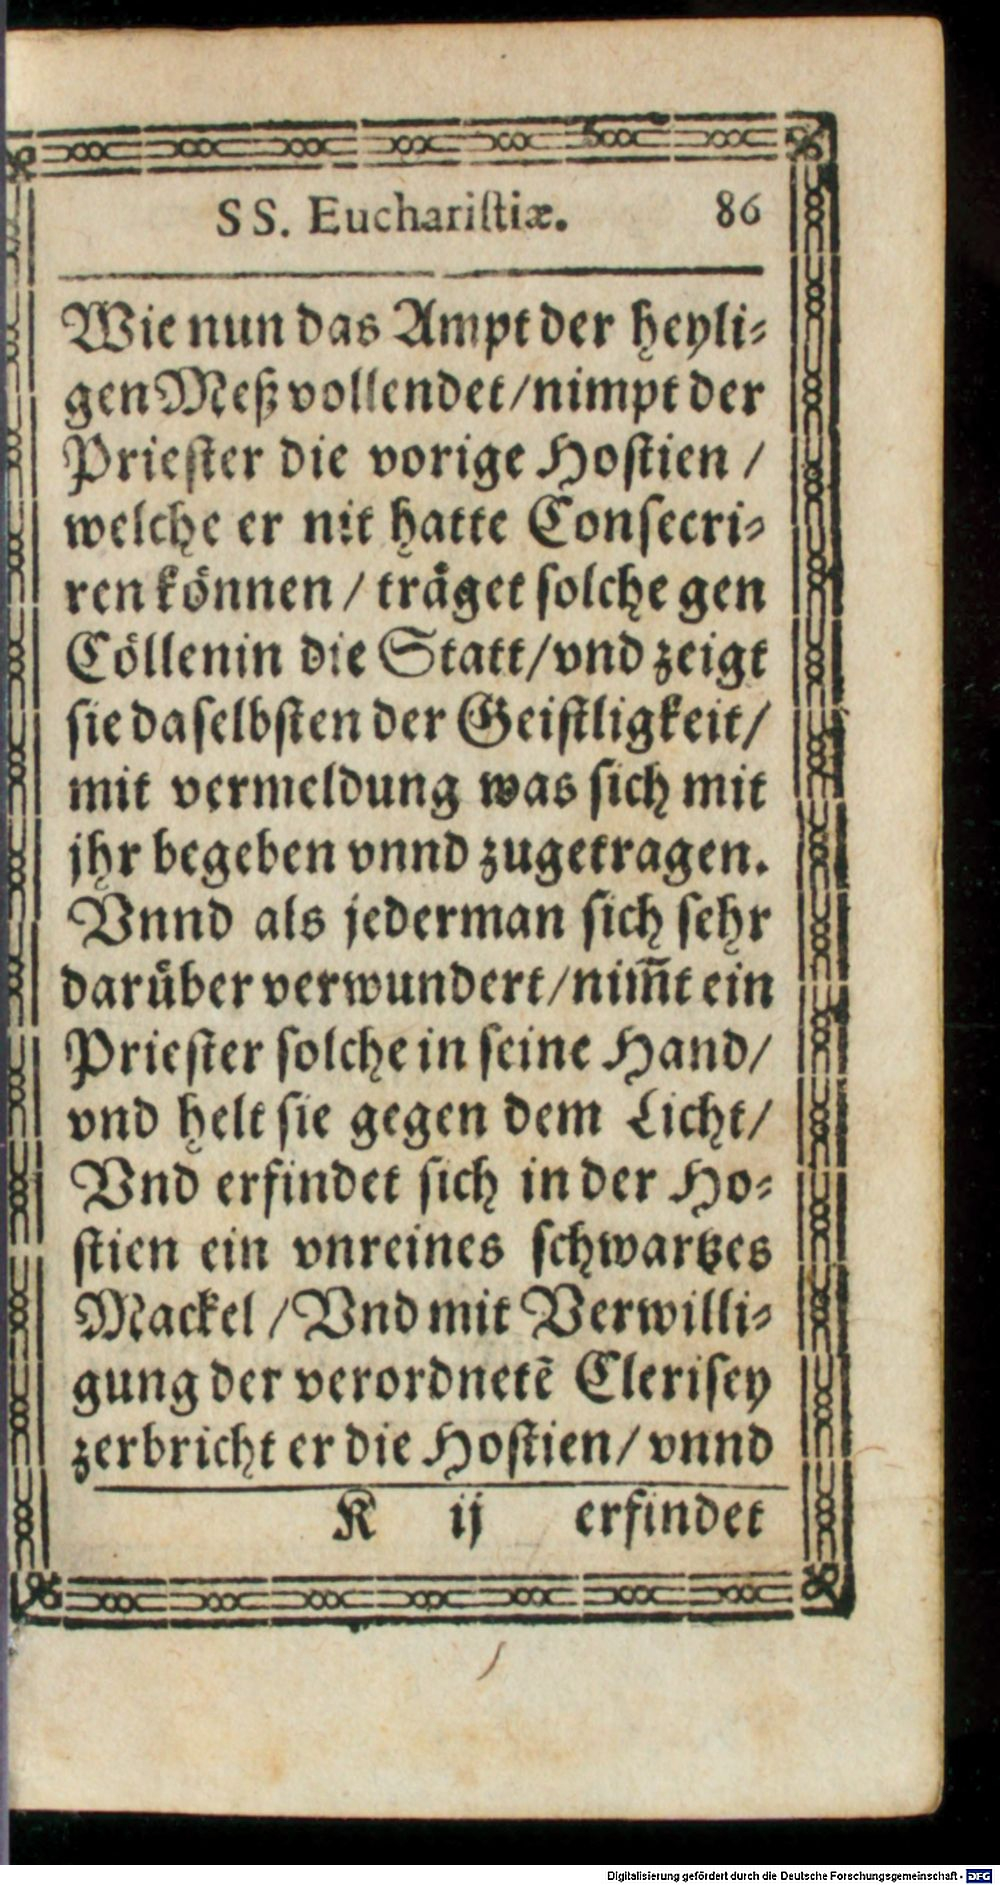 SS. Euchariſtiæ. 86
Wie nun das Ampt der heyli⸗
gen Meß vollendet/nimpt der
Prieſter die vorige Hoſtien /
welche er nit hatte Conſecri⸗
ren koͤnnen / traͤget ſolche gen
Coͤllenin die Statt/vnd zeigt
ſie daſelbſten der Geiſtligkeit/
mit vermeldung was ſich mit
jhr begeben vnnd zugetragen.
Vnnd als jederman ſich ſehr
daruͤber verwundert/nim̃t ein
Prieſter ſolche in ſeine Hand/
vnd helt ſie gegen dem Licht/
Vnd erfindet ſich in der Ho⸗
ſtien ein vnreines ſchwartzes
Mackel /Vnd mit Verwilli⸗
gung der verordnetẽ Cleriſey
zerbricht er die Hoſtien/ vnnd
K ij erfindet
Digitalisierung gefördert durch die Deutsche Forschungsgemeinschaft - DFG